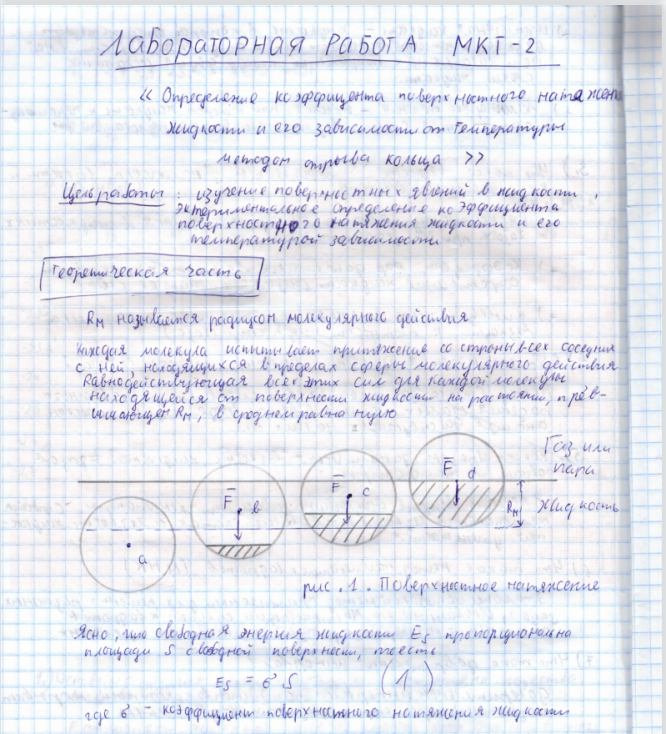 ЛАБОРАТОРНАЯ РАБОТА МКТ-2
« Определение коэффицента поверхностного натяжени
жидкости и его зависимости от температуры
методом отрыва кольца »
Цель работы: изучение поверхностных явлений в жидкости,
эктериментальное определение коэффициента
поверхностного натяжения жидкости и его
температурой зависимости
Теоретическая часть
Rм называется радиусом молекулярного действия
Каждая молекула испытывает притяжение со стороны всех соседних
с ней, находящихся в пределах сферы молекулярного действия
Равнодействующая всех этих сил для каждой молекулы
находящейся от поверхности жидкости на растоянии, прев-
ышающем Rм, в среднем равна нулю
Газ или
пара
F d
F c
F b
Rм
Жидкость
a
рис. 1. Поверхностное натяжение
Ясно, что свободная энергия жидкости Es пропорциональна
площади S свободной поверхности, тоесть
Es = σ S (1)
где σ - коэффициент поверхностного натяжения жидкости